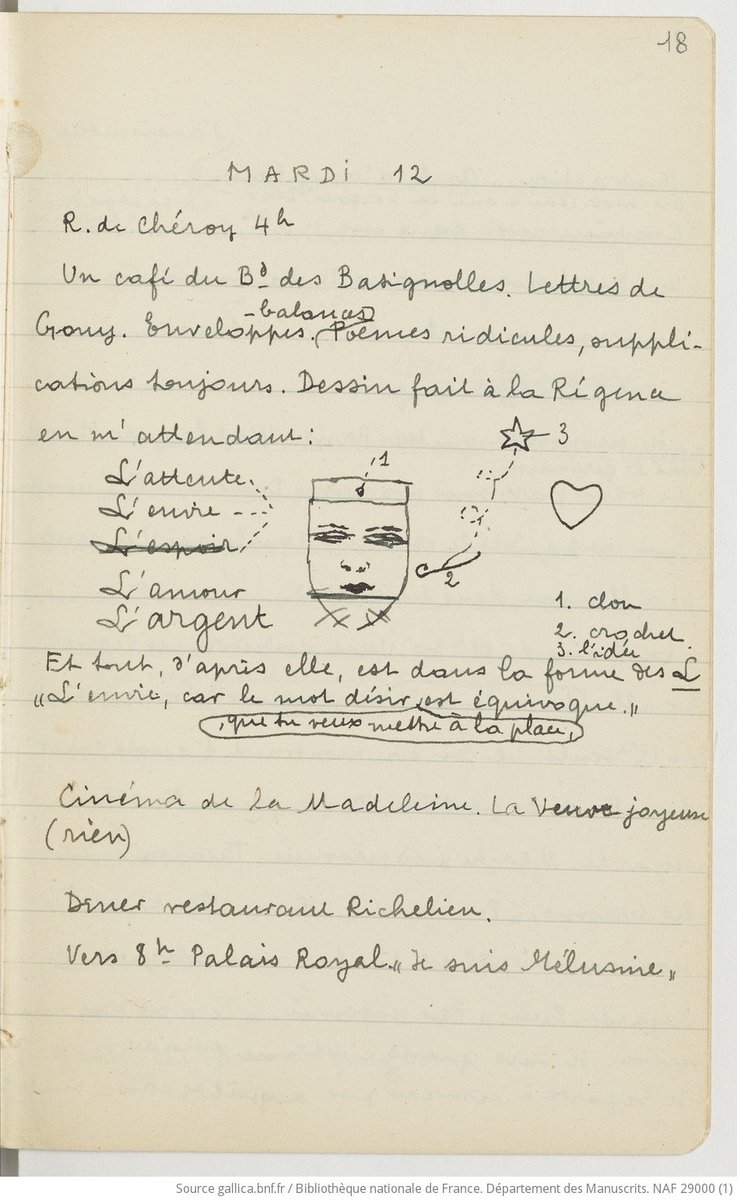 18
MARDI 12
R. de Chéroy 4h
Un café du Bd des Batignolles. Lettres de
-balances
Gouy. Enveloppes. Poèmes ridicules, suppli-
cations toujours. Dessin fait à la Régence
en m'attendant :
L'attente
L'envie
L'espoir
L'amour
L'argent
1
3
2
1. clou
2. crochet
3. l'idée
Et tout, d'après elle, est dans la forme des L
"L'envie, car le mot désir est équivoque."
, que tu veux mettre à la place,
Cinéma de la Madeleine. La Veuve joyeuse
(rien)
Dîner restaurant Richelieu.
Vers 8h Palais Royal. "Je suis Mélusine"
Source gallica.bnf.fr / Bibliothèque nationale de France. Département des Manuscrits. NAF 29000 (1)